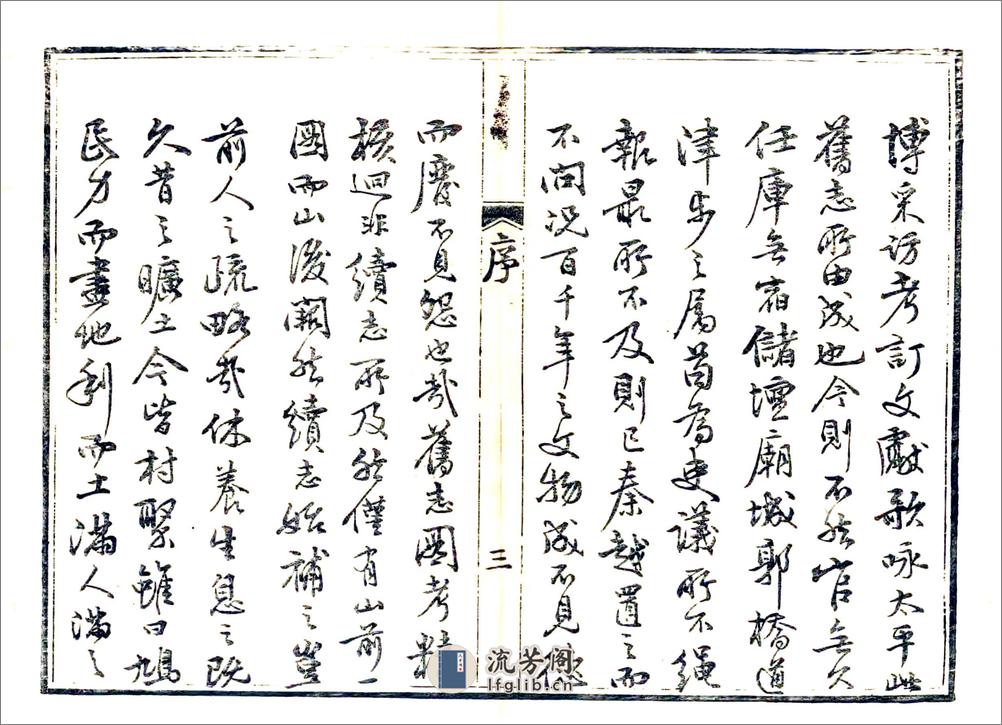 博采訪考訂文獻歌咏太平此
舊志所由成也今則不然官無久
任庫無宿儲壇廟城郭橋道
津步之屬苟為吏議所不繩
報最所不及則已秦越置之而
不問况百千年之文物成不見德
而廢不見怨也哉舊志圖考粗
疎迥非續志所及然僅有山前一
圖而山後闕然續志始補之豈
前人之疏略哉休養生息之既
久昔之曠土今皆村聚雖曰竭
民力而盡地利而土滿人滿之
序
三
流芳阁
lfglib.cn